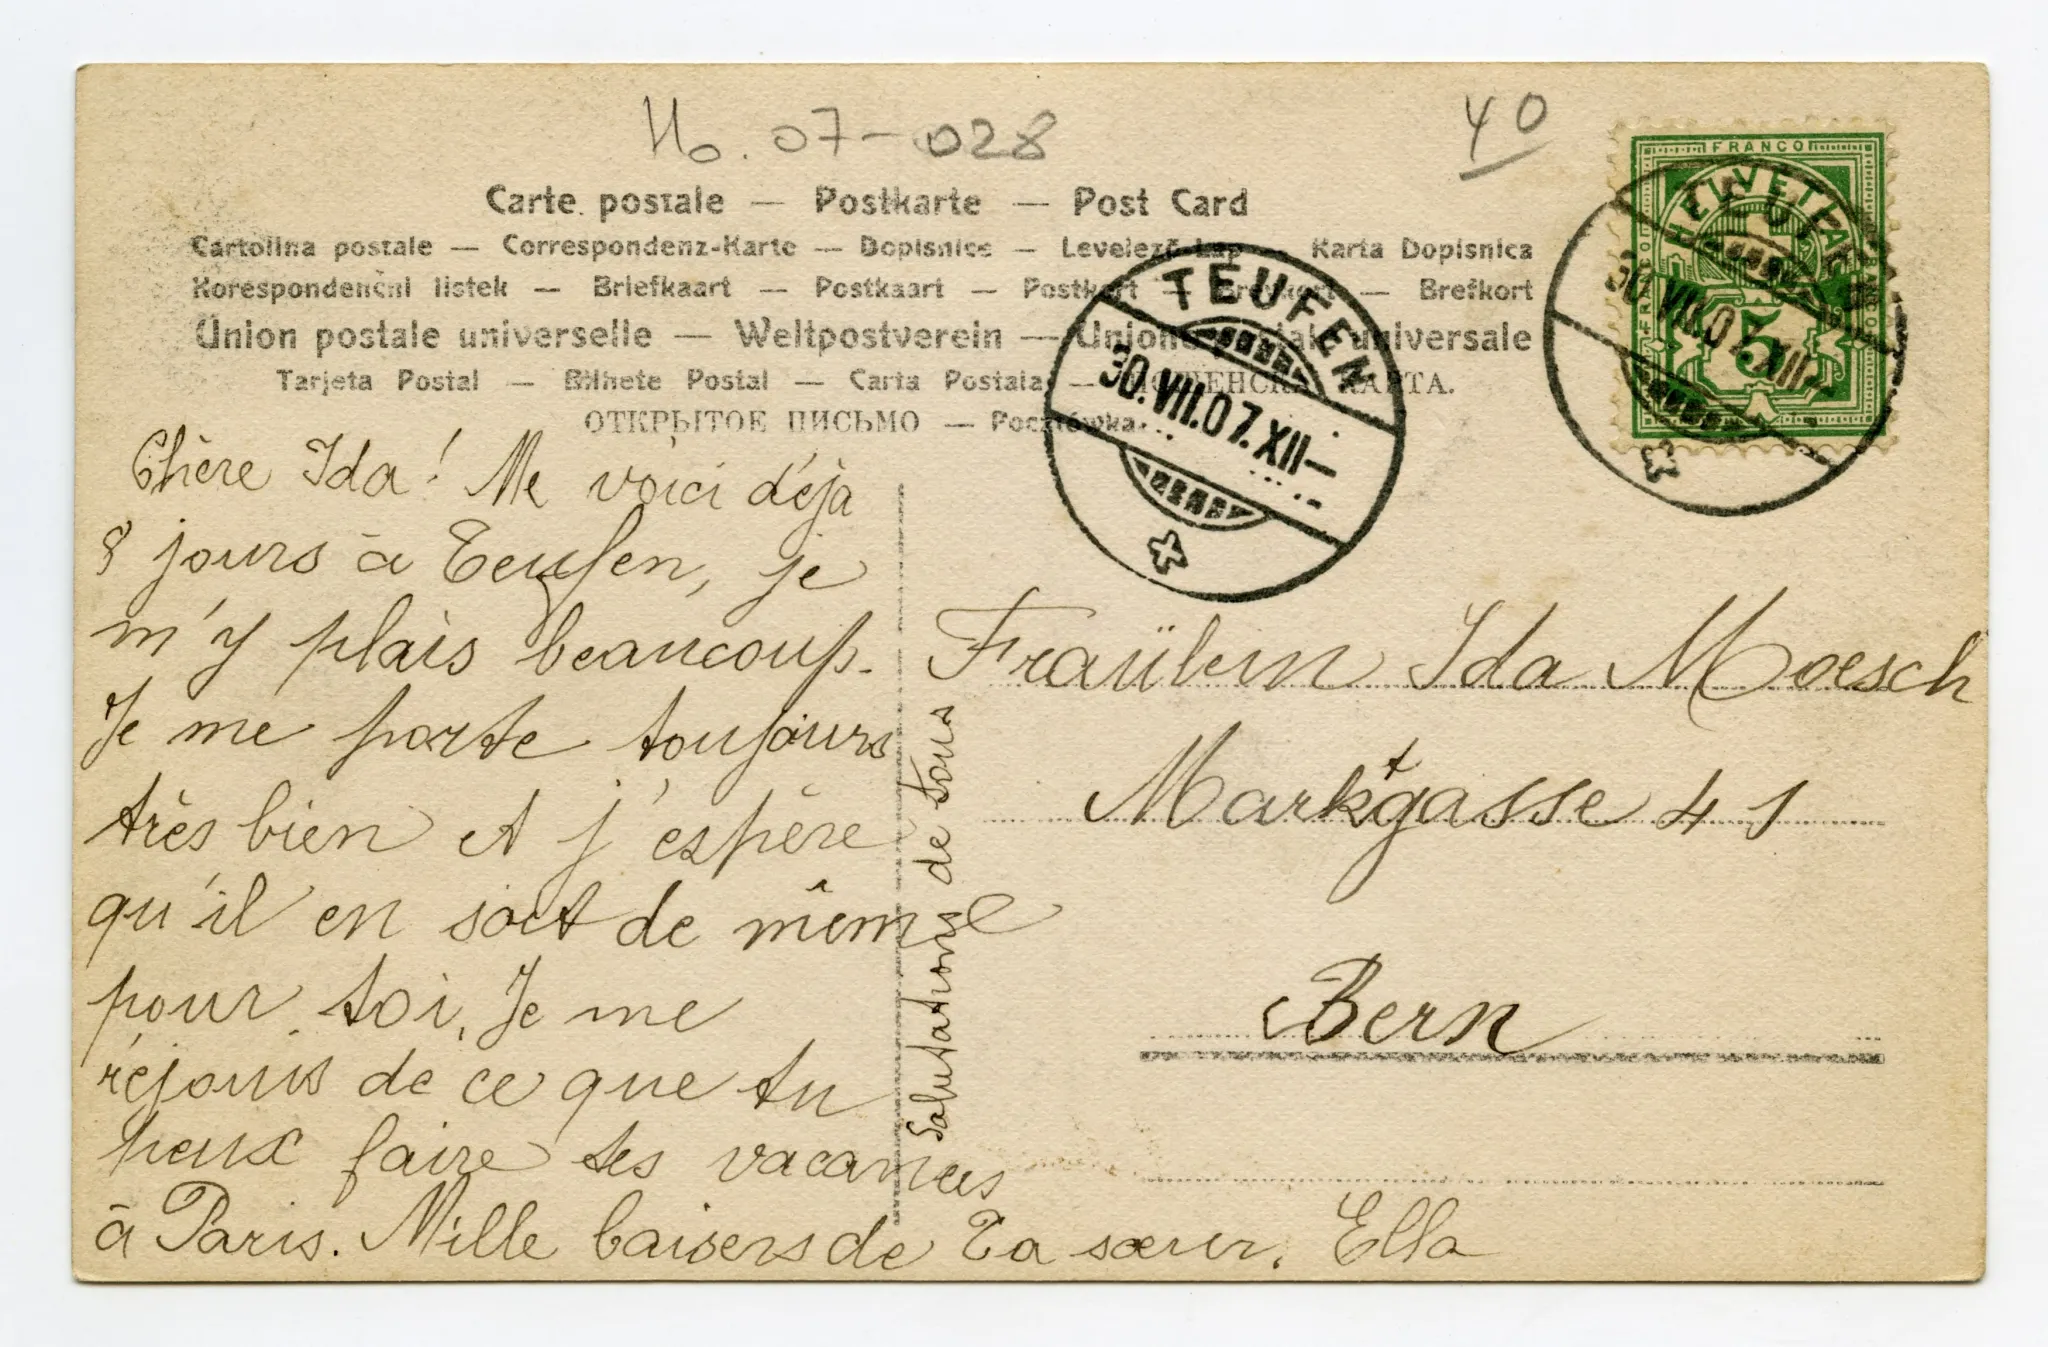 No. 07-028
40
Carte postale — Postkarte — Post Card
Cartolina postale — Correspondenz-Karte — Dopisnice — Levelező-Lap Karta Dopisnica
Korespondenčni listek — Briefkaart — Postkaart — Postkort — Brevkort — Brefkort
Union postale universelle — Weltpostverein — Unione postale universale
Tarjeta Postal — Bilhete Postal — Carta Postala — КАРТА.
ОТКРЫТОЕ ПИСЬМО — Pocztówka
FRANCO
HELVETIA
FRANCO
FRANCO
5
TEUFEN
30.VII.07.XII—
30.VII.07.XII—
Chère Ida! Me voici déja
8 jours à Teufen, je
m'y plais beaucoup.
Je me porte toujours
très bien et j'espère
qu'il en soit de même
pour toi. Je me
réjouis de ce que tu
peux faire tes vacances
à Paris. Mille baisers de Ta sœur. Ella
Salutations de Tous
Fraülein Ida Moesch
Marktgasse 41
Bern